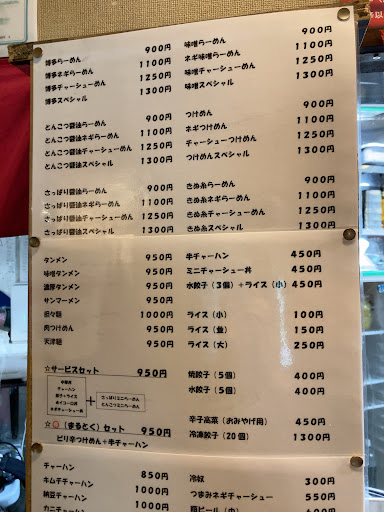 博多らーめん 900円
博多ネギらーめん 1100円
博多チャーシューめん 1250円
博多スペシャル 1300円
とんこつ醤油らーめん 900円
とんこつ醤油ネギらーめん 1100円
とんこつ醤油チャーシューめん 1250円
とんこつ醤油スペシャル 1300円
さっぱり醤油らーめん 900円
さっぱり醤油ネギらーめん 1100円
さっぱり醤油チャーシューめん 1250円
さっぱり醤油スペシャル 1300円
味噌らーめん 900円
ネギ味噌らーめん 1100円
味噌チャーシューめん 1250円
味噌スペシャル 1300円
つけめん 900円
ネギつけめん 1100円
チャーシューつけめん 1250円
つけめんスペシャル 1300円
きぬ糸らーめん 900円
きぬ糸ネギらーめん 1100円
きぬ糸チャーシューめん 1250円
きぬ糸スペシャル 1300円
タンメン 950円
味噌タンメン 950円
濃厚タンメン 950円
サンマーメン 950円
担々麺 1000円
肉つけめん 950円
天津麺 950円
☆サービスセット 950円
中華丼
チャーハン
餃子+ライス
ネギチャーシュー丼
+
さっぱりミニらーめん
とんこつミニらーめん
☆〇(まるとく)セット 950円
ピリ辛つけめん+半チャーハン
半チャーハン 450円
ミニチャーシュー丼 450円
水餃子(3個)+ライス(小) 450円
ライス(小) 100円
ライス(並) 150円
ライス(大) 250円
焼餃子(5個) 400円
水餃子(5個) 400円
辛子高菜(おみやげ用) 450円
冷凍餃子(20個) 1300円
チャーハン 850円
キムチチャーハン 1000円
納豆チャーハン 1000円
カニチャーハン 1000円
冷奴 300円
つまみネギチャーシュー 550円
瓶ビール(中) 600円